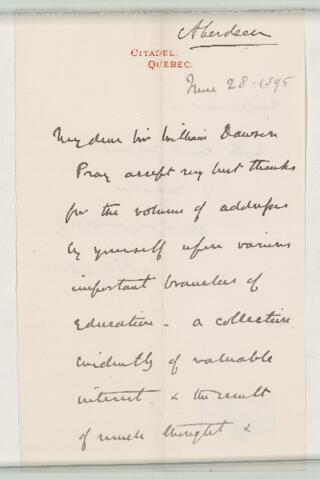 Aberdeen
CITADEL.
QUEBEC.
June 28. 1895
My dear Sir William Dawson
Pray accept my best thanks
for the volume of addresses
by yourself upon various
important branches of
Education - a collection
evidently of valuable
interest & the result
of much thought &